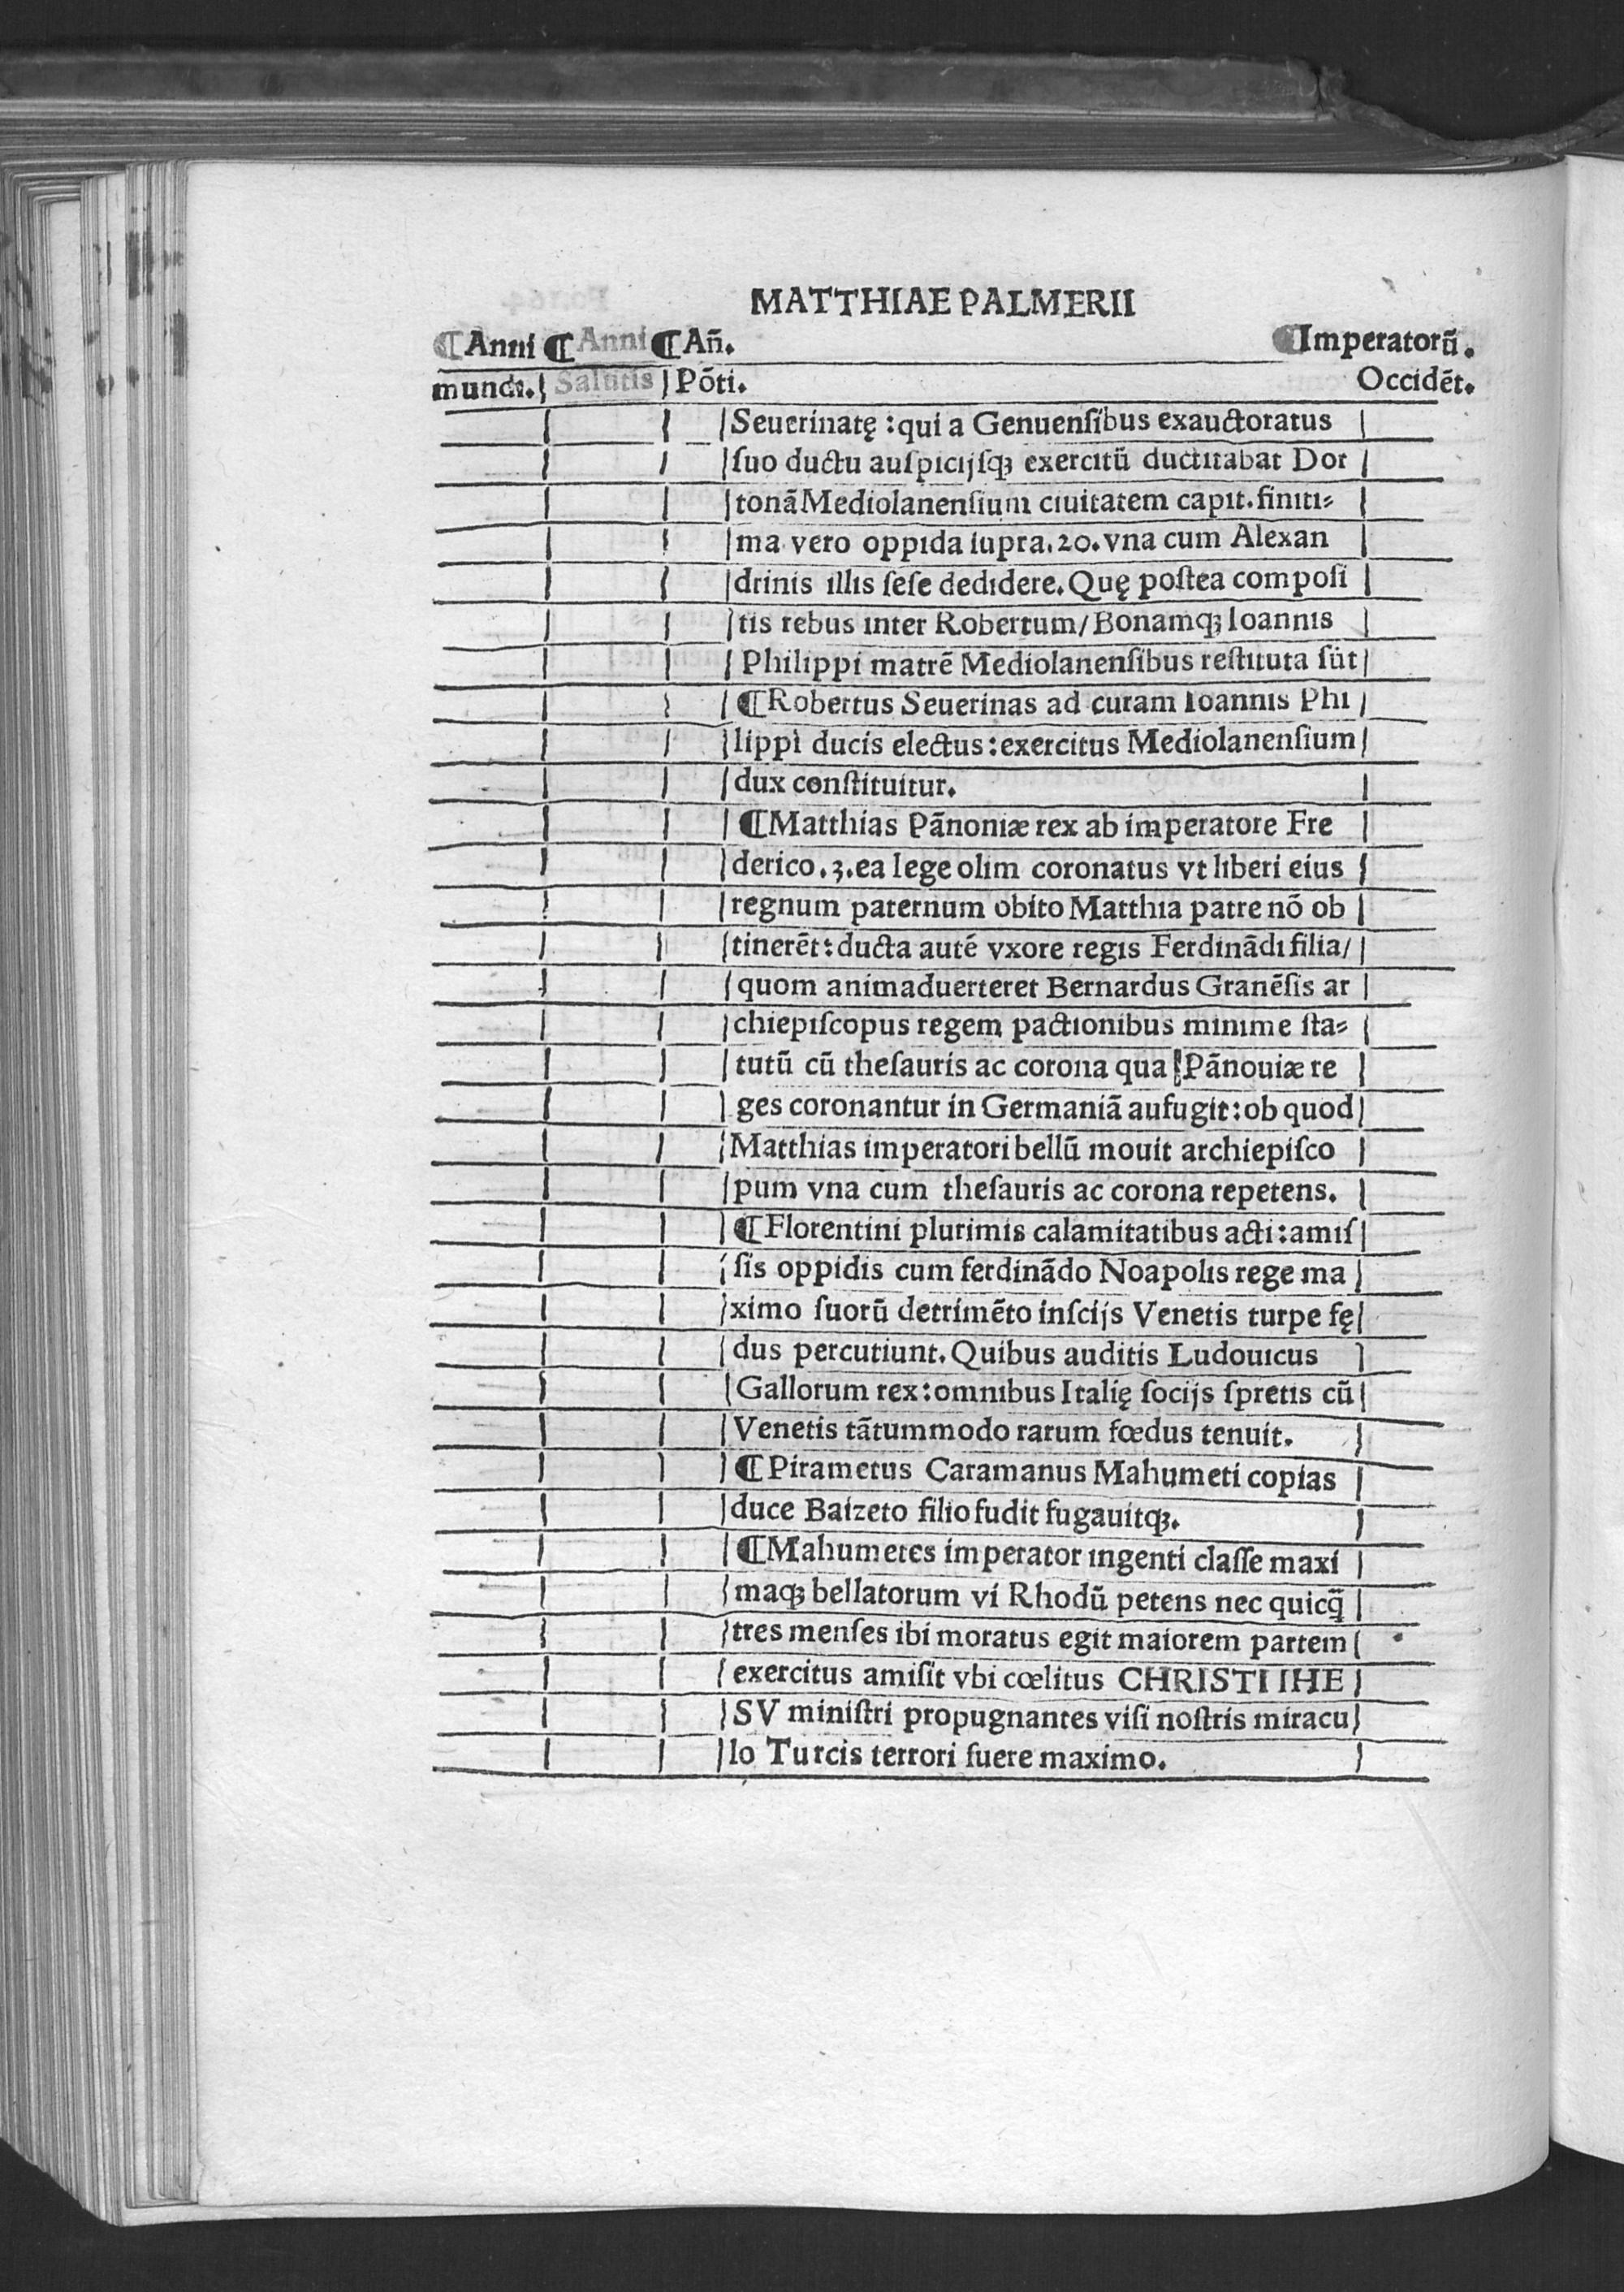 MATTHIAE PALMERII
¶Anni ¶Anni ¶Añ. ¶Imperatorū.
mundi. Salutis Põti. Occidēt.
Seuerinatę:qui a Genuenſibus exauctoratus
ſuo ductu auſpicijſqꝫ exercitū ductitabat Dor
tonã Mediolanenſium ciuitatem capit.finiti⸗
ma vero oppida ſupra.20.vna cum Alexan
drinis illis ſeſe dedidere.Quę poſtea compoſi
tis rebus inter Robertum/Bonamqꝫ Ioannis
Philippi matrē Mediolanenſibus reſtituta ſūt
¶Robertus Seuerinas ad curam Ioannis Phi
lippi ducis electus:exercitus Mediolanenſium
dux conſtituitur.
¶Matthias Pãnoniæ rex ab imperatore Fre
derico.3.ea lege olim coronatus vt liberi eius
regnum paternum obito Matthia patre nõ ob
tinerēt:ducta autē vxore regis Ferdinãdi filia/
quom animaduerteret Bernardus Granēſis ar
chiepiſcopus regem pactionibus minime ſta⸗
tutū cū theſauris ac corona qua Pãnouiæ re
ges coronantur in Germaniã aufugit:ob quod
Matthias imperatori bellū mouit archiepiſco
pum vna cum theſauris ac corona repetens.
¶Florentini plurimis calamitatibus acti:amiſ
ſis oppidis cum ferdinãdo Noapolis rege ma
ximo ſuorū detrimēto inſcijs Venetis turpe fę
dus percutiunt.Quibus auditis Ludouicus
Gallorum rex:omnibus Italię ſocijs ſpretis cū
Venetis tãtummodo rarum fœdus tenuit.
¶Pirametus Caramanus Mahumeti copias
duce Baizeto filio fudit fugauitqꝫ.
¶Mahumetes imperator ingenti claſſe maxi
maqꝫ bellatorum vi Rhodū petens nec quicq̃
tres menſes ibi moratus egit maiorem partem
exercitus amiſit vbi cœlitus CHRISTI IHE
SV miniſtri propugnantes viſi noſtris miracu
lo Turcis terrori fuere maximo.